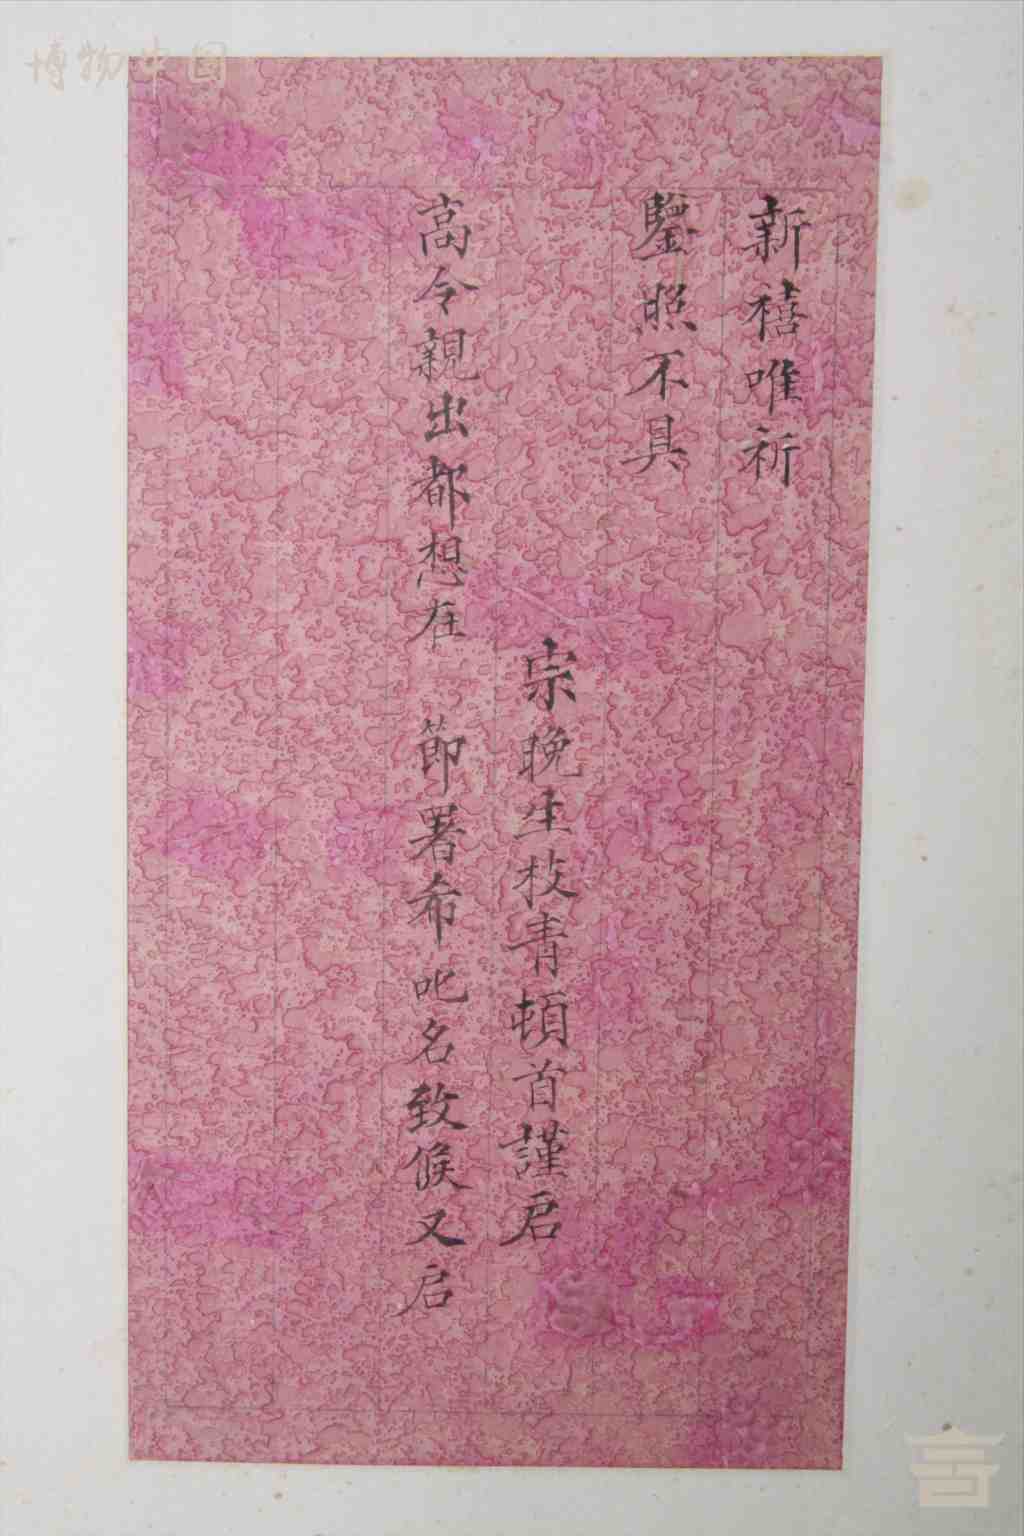 新禧唯祈
鑒照不具
宗晚生枝青頓首謹启
高令親出都想在 節署希叱名致候又启
博物中国